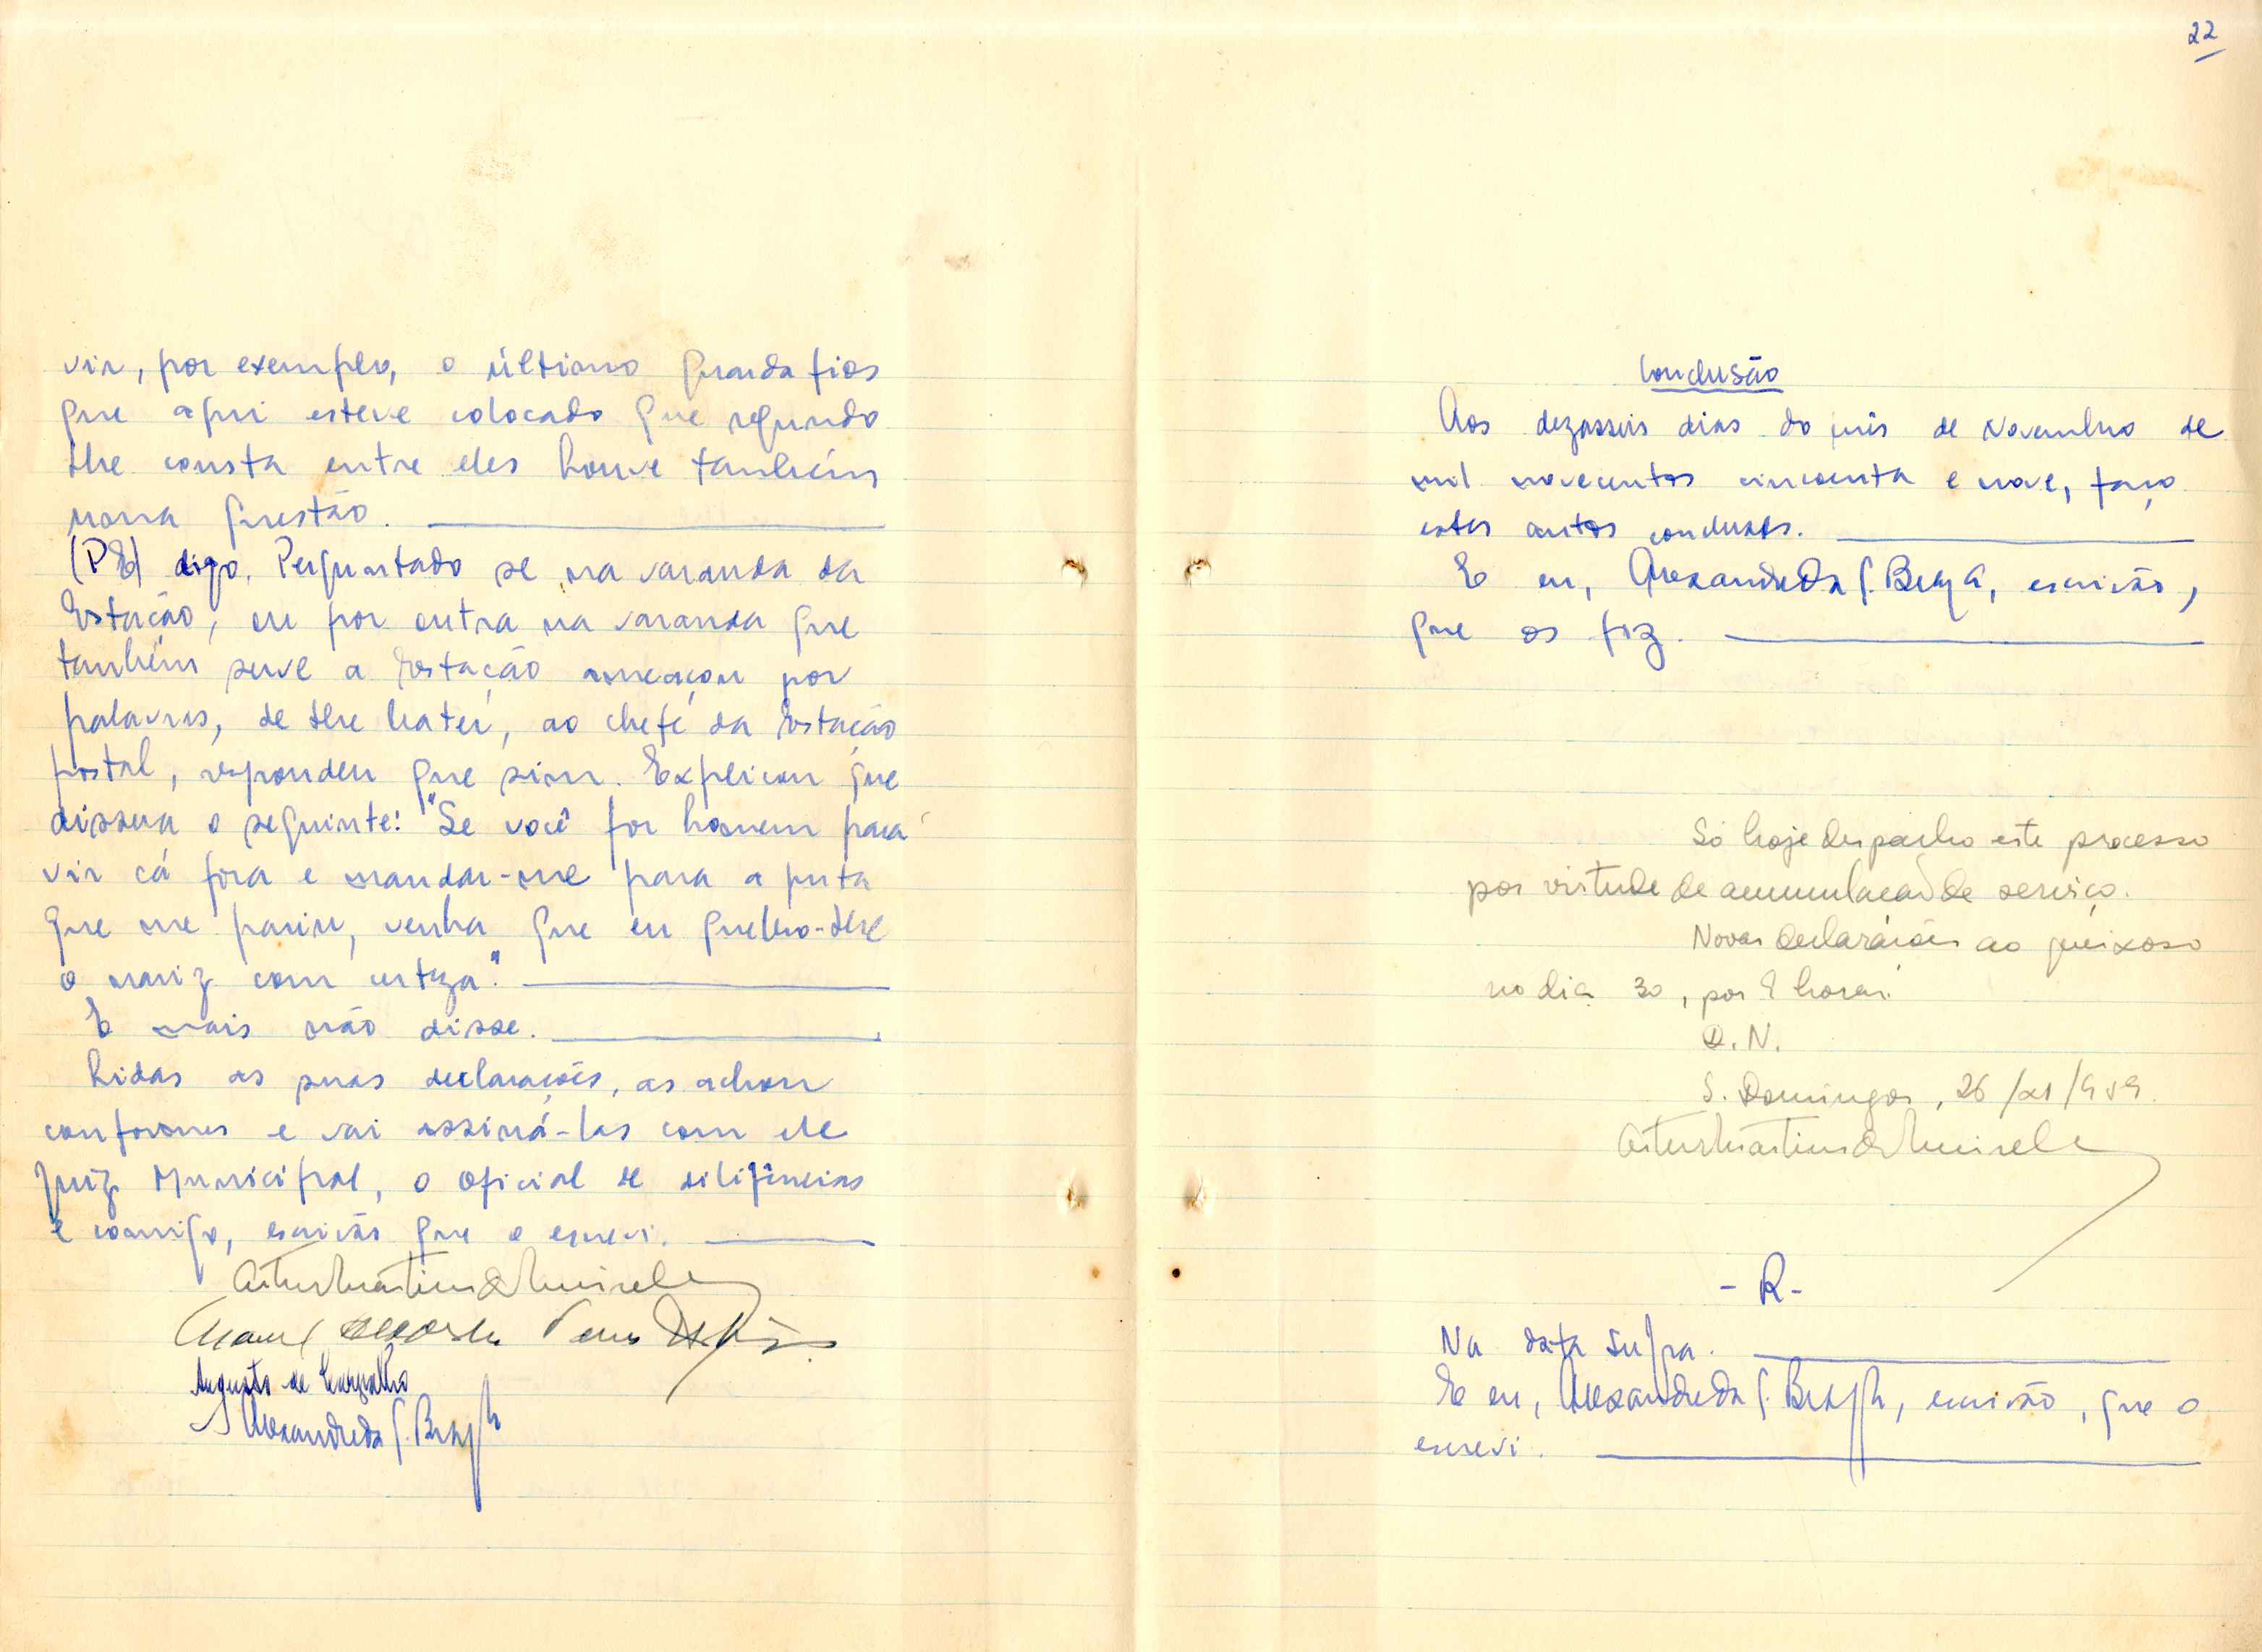 vir, por exemplo, o último guarda fios
que aqui esteve colocado que segundo
lhe consta entre eles houve também
uma questão.
(PE) digo. Perguntado se na varanda da
Estação, ou por outra na varanda que
também serve a Estação ameaçou por
palavras, de lhe bater, ao chefe da Estação
postal, respondeu que sim. Explicou que
dissera o seguinte: "Se você for homem para
vir cá fora e mandar-me para a puta
que me pariu, venha que eu quebro-lhe
o nariz com certeza."
E mais não disse.
Lidas as suas declarações, as achou
conformes e vai assiná-las com ele
Juiz Municipal, o oficial de diligências
e comigo, escrivão que o escrevi.
Artur Martins de Meireles
Augusto de Carvalho
Alexandre da S. Braga
22
Conclusão
Aos dezasseis dias do mês de Novembro de
mil novecentos cincoenta e nove, faço
estes autos conclusos.
E eu, Alexandre da S. Braga, escrivão,
que os fiz.
Só hoje despacho este processo
por virtude de acumulação de serviço.
Novas declarações ao queixoso
no dia 30, por 8 horas.
D. N.
S. Domingos, 26/XI/959.
Artur Martins de Meireles
- R -
Na data supra.
E eu, Alexandre da S. Braga, escrivão, que o
escrevi.